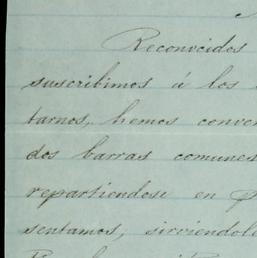 Reconocidos
suscribimos á los
tarnos, hemos conve
dos barras comunes
repartiendose en p
sentamos, sirviendol